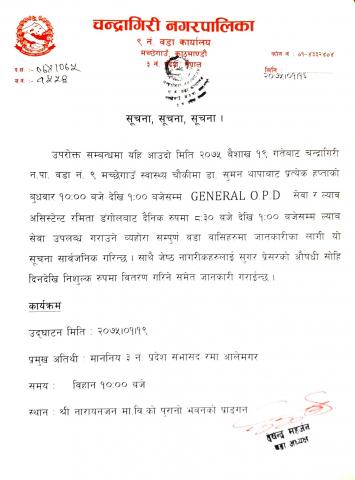 चन्द्रागिरी नगरपालिका
९ नं. वडा कार्यालय
मच्छेगाउँ काठमाण्डौ
३ नं. प्रदेश नेपाल
फोन नं. : ०१-४३२२४०४
प.सं.:- ०७४।०७५
च.नं.:- १५५४
मिति
२०७५।०१।१६
सूचना, सूचना, सूचना ।
उपरोक्त सम्बन्धमा यहि आउदो मिति २०७५ बैशाख १९ गतेबाट चन्द्रागिरी
न.पा. वडा नं. ९ मच्छेगाउँ स्वास्थ्य चौकीमा डा. सुमन थापाबाट प्रत्येक हप्ताको
बुधवार १०:०० बजे देखि १:०० बजेसम्म GENERAL O.P.D सेवा र ल्याव
असिस्टेन्ट रमिता डंगोलबाट दैनिक रुपमा ८:३० बजे देखि १:०० बजेसम्म ल्याव
सेवा उपलब्ध गराउने व्यहोरा सम्पुर्ण वडा वासिहरुमा जानकारीका लागी यो
सूचना सार्वजनिक गरिन्छ । साथै जेष्ठ नागरीकहरुलाई सुगर प्रेसरको औषधी सोहि
दिनदेखि निशुल्क रुपमा वितरण गरिने समेत जानकारी गराईन्छ ।
कार्यक्रम
उद्घाटन मिति : २०७५।०१।१९
प्रमुख अतिथी : माननिय ३ नं प्रदेश सभासद रमा आलेमगर
समय : विहान १०:०० बजे
स्थान : श्री नारायनजन मा.वि.को पुरानो भवनको प्राङ्गन
महर्जन
वडा अध्यक्ष